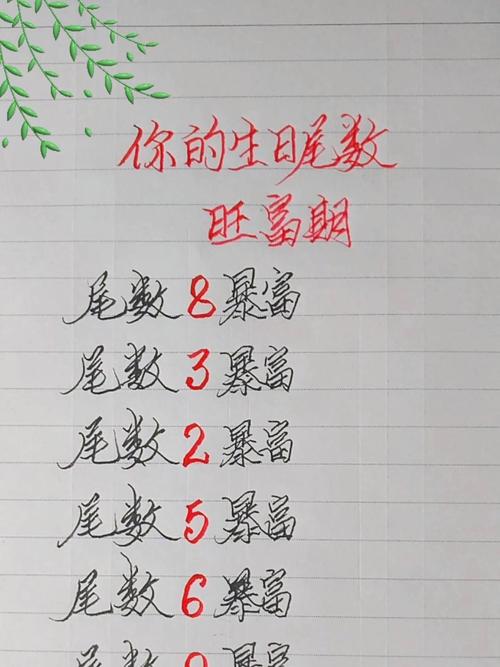 你的生日尾数
旺富期
尾数8暴富
尾数3暴富
尾数2暴富
尾数5暴富
尾数6暴富